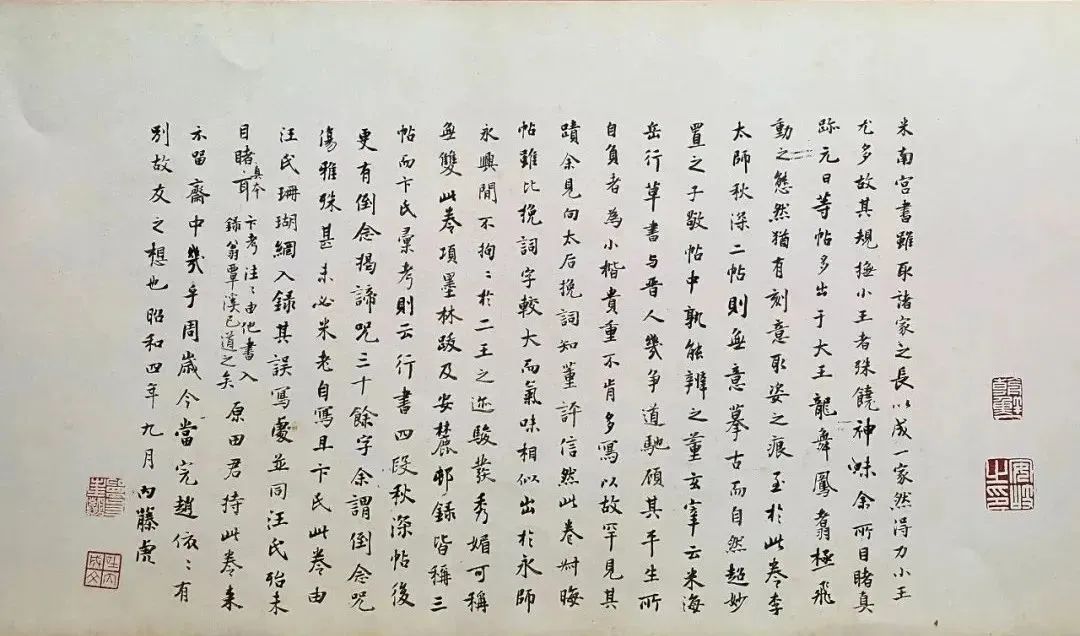 米南宮書雖取諸家之長以成一家然得力小王
尤多故其規撫小王者殊饒神味余所目睹真
跡元日等帖多出于大王龍舞鳳翥極飛
動之態然猶有刻意取姿之痕至於此卷李
太師秋深二帖則無意摹古而自然超妙
置之子敬帖中孰能辨之董玄宰云米海
岳行草書与晋人幾争道馳顧其平生所
自負者為小楷貴重不肯多寫以故罕見其
蹟余見向太后挽詞知董評信然此卷対晦
帖雖比挽詞字較大而氣味相似出於永師
永興間不拘〻於二王之迹駿發秀媚可稱
無雙此卷項墨林跋及安麓邨録皆稱三
帖而卞氏彙考則云行書四段秋深帖後
更有倒念揭諦咒三十餘字余謂倒念咒
傷雅殊甚未必米老自寫且卞氏此卷由
汪氏珊瑚網入録其誤寫處並同汪氏殆未
目睹真本耳卞考注〻由他書入録翁覃溪已道之矣原田君持此卷来
示留齋中幾乎周歳今當完趙依〻有
別故友之想也昭和四年九月 内藤虎